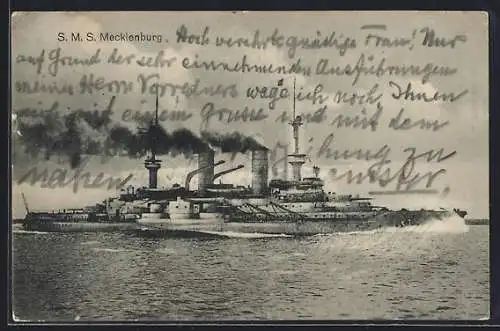 S. M. S. Mecklenburg.
Hoch verehrte gnädige Frau! Nur
auf Grund der sehr einnehmenden Ausführungen
meines Herrn Vorredners wage ich noch, Ihnen
mit einem Gruse und mit dem
zu
nahen